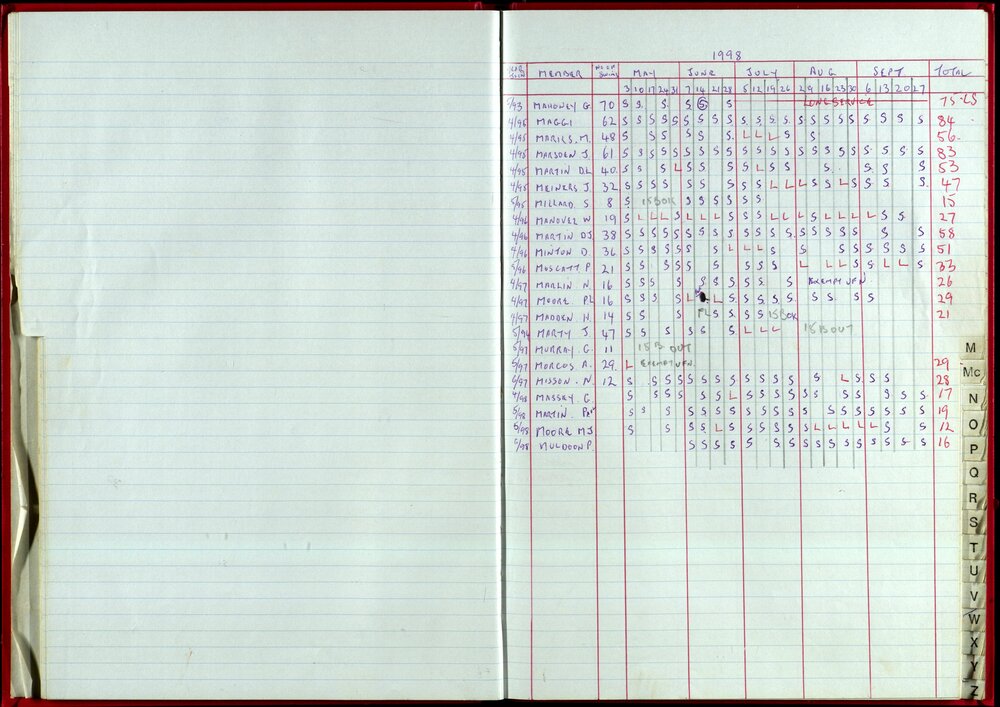 1998
MEMBER NO OF SWIMS MAY JUNE JULY AUG SEPT TOTAL
3 10 17 24 31 7 14 21 28 5 12 19 26 2 9 16 23 30 6 13 20 27
5/93 MAHONEY G 70 S S S S S S LONG SERVICE 75-LS
4/96 MAGGI 62 S S S S S S S S S S S S S S S S S S S S S S 84
4/95 MARKS. M. 48 S S S S S S L L L S S 56
4/95 MARSDEN J. 61 S S S S S S S S S S S S S S S S S S S S S S 83
4/95 MARTIN DL 40 S S S L S S S S L S S S S S S 53
4/95 MEINERS J. 32 S S S S S S S S S L L L S S L S S S S 47
5/95 MILLARD S 8 S 15 BOK S S S S S S S 15
4/96 MANOUEL W 19 S L L L S L L L S S S L L L S L L L L S S 27
4/96 MARTIN DJ 38 S S S S S S S S S S S S S S S S S S S S 58
4/96 MINTON D. 36 S S S S S S S L L L S S S S S S S S 51
5/96 MUSCATT. P 21 S S S S S S S S S L L L S S L L S 33
4/97 MARLIN N. 16 S S S S S S S S S S S EXEMPT UFN 26
4/97 MOORE PL 16 S S S S L L S S S S S S S S S 29
4/97 MADDEN N. 14 S S S S S S S S 15 BOK 21
5/94 MARTY J. 47 S S S S S S L L L 15 B OUT
5/97 MURRAY. G. 11 15 B OUT
5/97 MORCOS A. 29 L EXEMPT UFN 29
6/97 MISSON. N. 12 S S S S S S S S S S S S S S L S S S 28
4/98 MASSEY G. S S S S S S S L S S S S S S S S S S S 17
5/98 MARTIN. S S S S S S S S S S S S S S S S S S S S 19
5/98 MOORE MJ S S S S L S S S S S L L L L L S S 12
6/98 MULDOON P. S S S S S S S S S S S S S S S S 16
M
Mc
N
O
P
Q
R
S
T
U
V
W
X
Y
Z